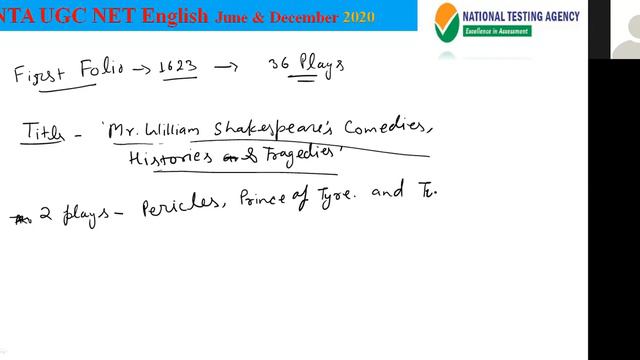 NTA UGC NET English June & December 2020
NATIONAL TESTING AGENCY
Excellence in Assessment
First Folio → 1623 → 36 Plays
Title - 'Mr. William Shakespeare's Comedies,
Histories & Tragedies'
2 plays - Pericles, Prince of Tyre. and